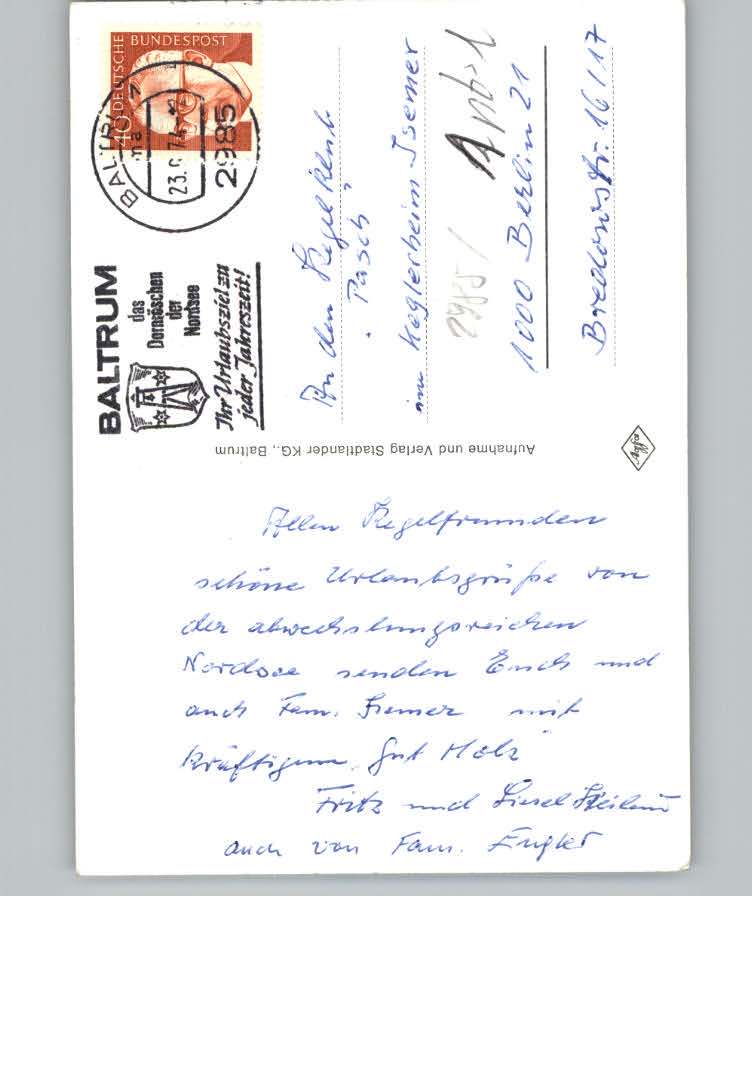 DEUTSCHE BUNDESPOST
40
2985
BALTRUM
das
Dornröschen
der
Nordsee
Ihr Urlaubsziel zu
jeder Jahreszeit!
An den Kegelklub
"Pasch"
im Keglerheim Isemer
1000 Berlin 21
Bredowstr. 16/17
2985/
Aufnahme und Verlag Stadtlander KG., Baltrum
Allen Kegelfreunden
schöne Urlaubsgrüße von
der abwechslungsreichen
Nordsee senden Euch und
auch Fam. Isemer mit
kräftigem "Gut Holz"
Fritz und Liesel
auch von Fam. Engler